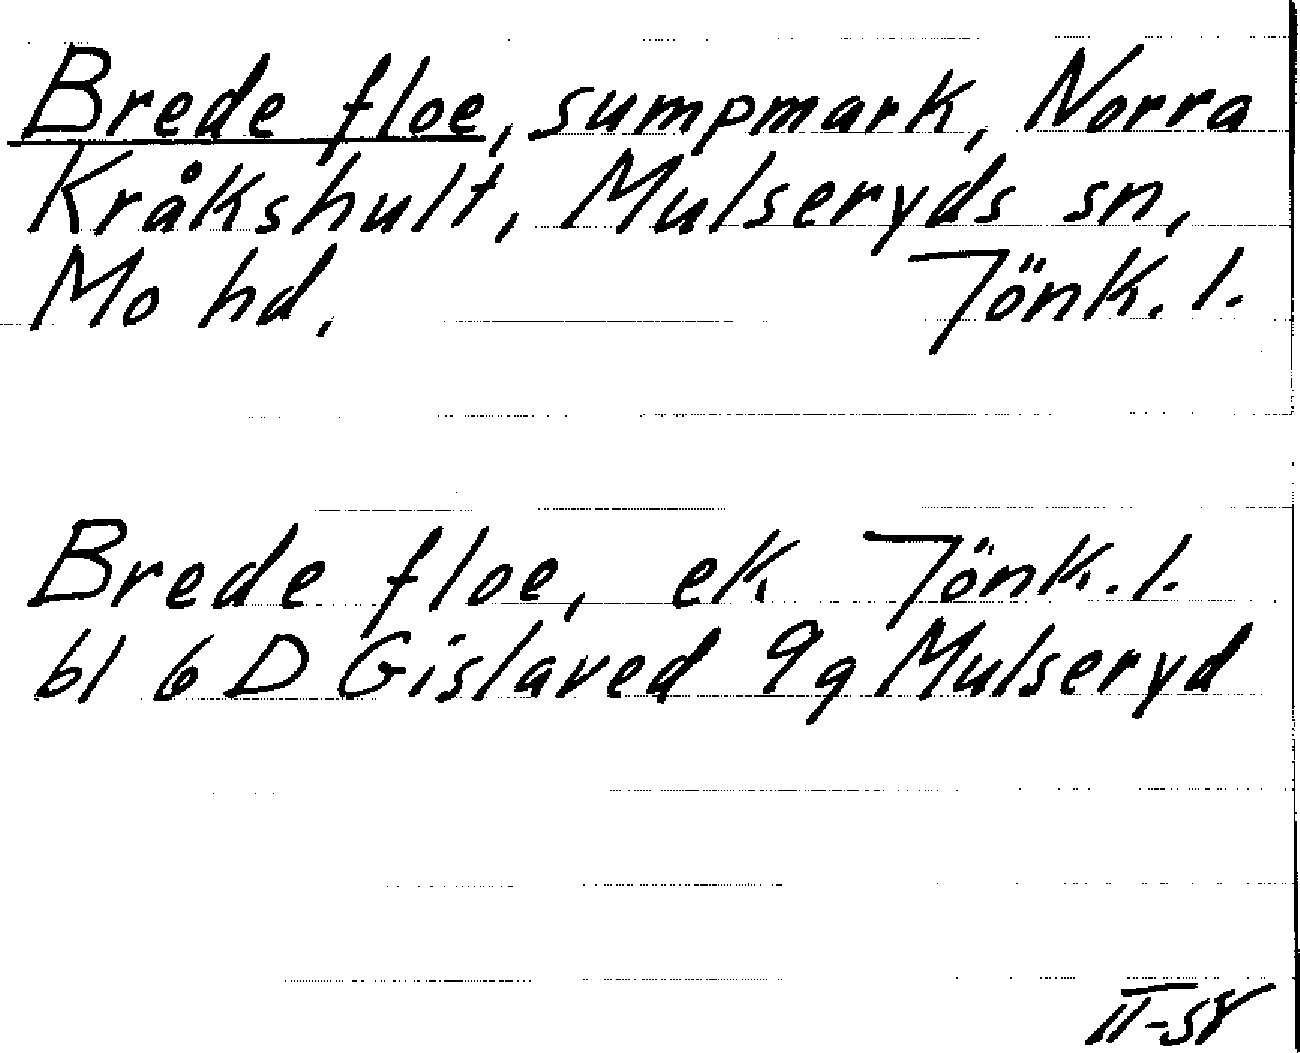 Brede floe, sumpmark, Norra
Kråkshult, Mulseryds sn,
Mo hd, Jönk. l.
Brede floe, ek Jönk. l.
bl 6 D Gislaved 9g Mulseryd
II-58